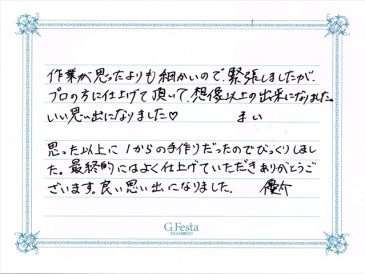 作業が思ったよりも細かいので緊張しましたが、
プロの方に仕上げて頂いて、想像以上の出来になりました。
いい思い出になりました♡ まい
思った以上に1からの手作りだったのでびっくりしまし
た。最終的にはよく仕上げていただきありがとうご
ざいます。良い思い出になりました。 優介
G.Festa
DIAMOND